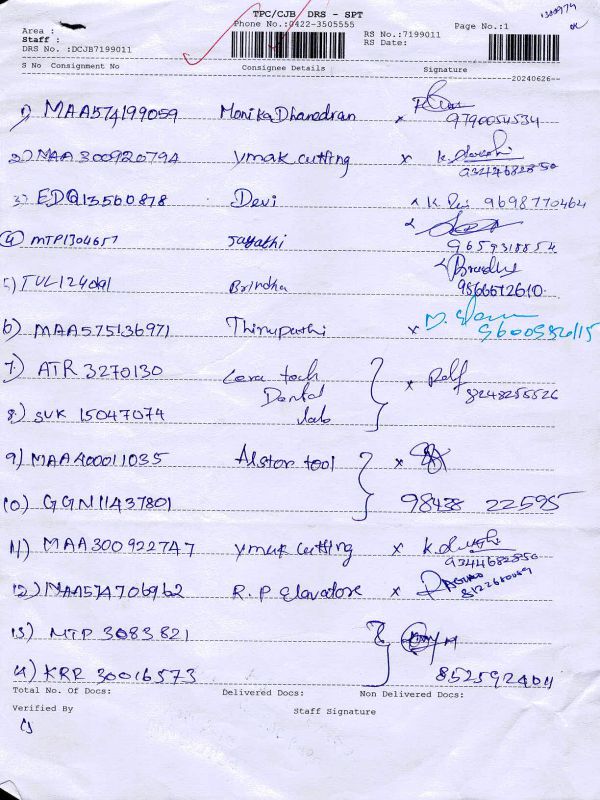 TPC/CJB DRS - SPT
Area :
Phone No.:0422-3505555
Page No.:1
Staff :
RS No.:7199011
DRS No. :DCJB7199011
RS Date:
S No Consignment No Consignee Details Signature
20240626
1) MAA574199059 Monika Dhanedran x 9790054534
2) MAA 300920794 ymak cutting x 9344682850
3) EDQ13560878 Devi K 9698770464
4) MTP1304657 Jayathi 9659318854
5) TUL124091 Brindha 9566672610
6) MAA575136971 Thirupathi x
7) ATR 3270130 x 8248255526
Dental
8) SUK 15047074 lab
9) MAA400011035 Alstor tool x
10) GGN11437801 98428 22595
11) MAA300922747 ymak cutting x 9344682850
12) MAA574706962 R.P elavatore x
13) MTP 3083821
14) KRR 30016573 8525924011
Total No. Of Docs: Delivered Docs: Non Delivered Docs:
Verified By Staff Signature